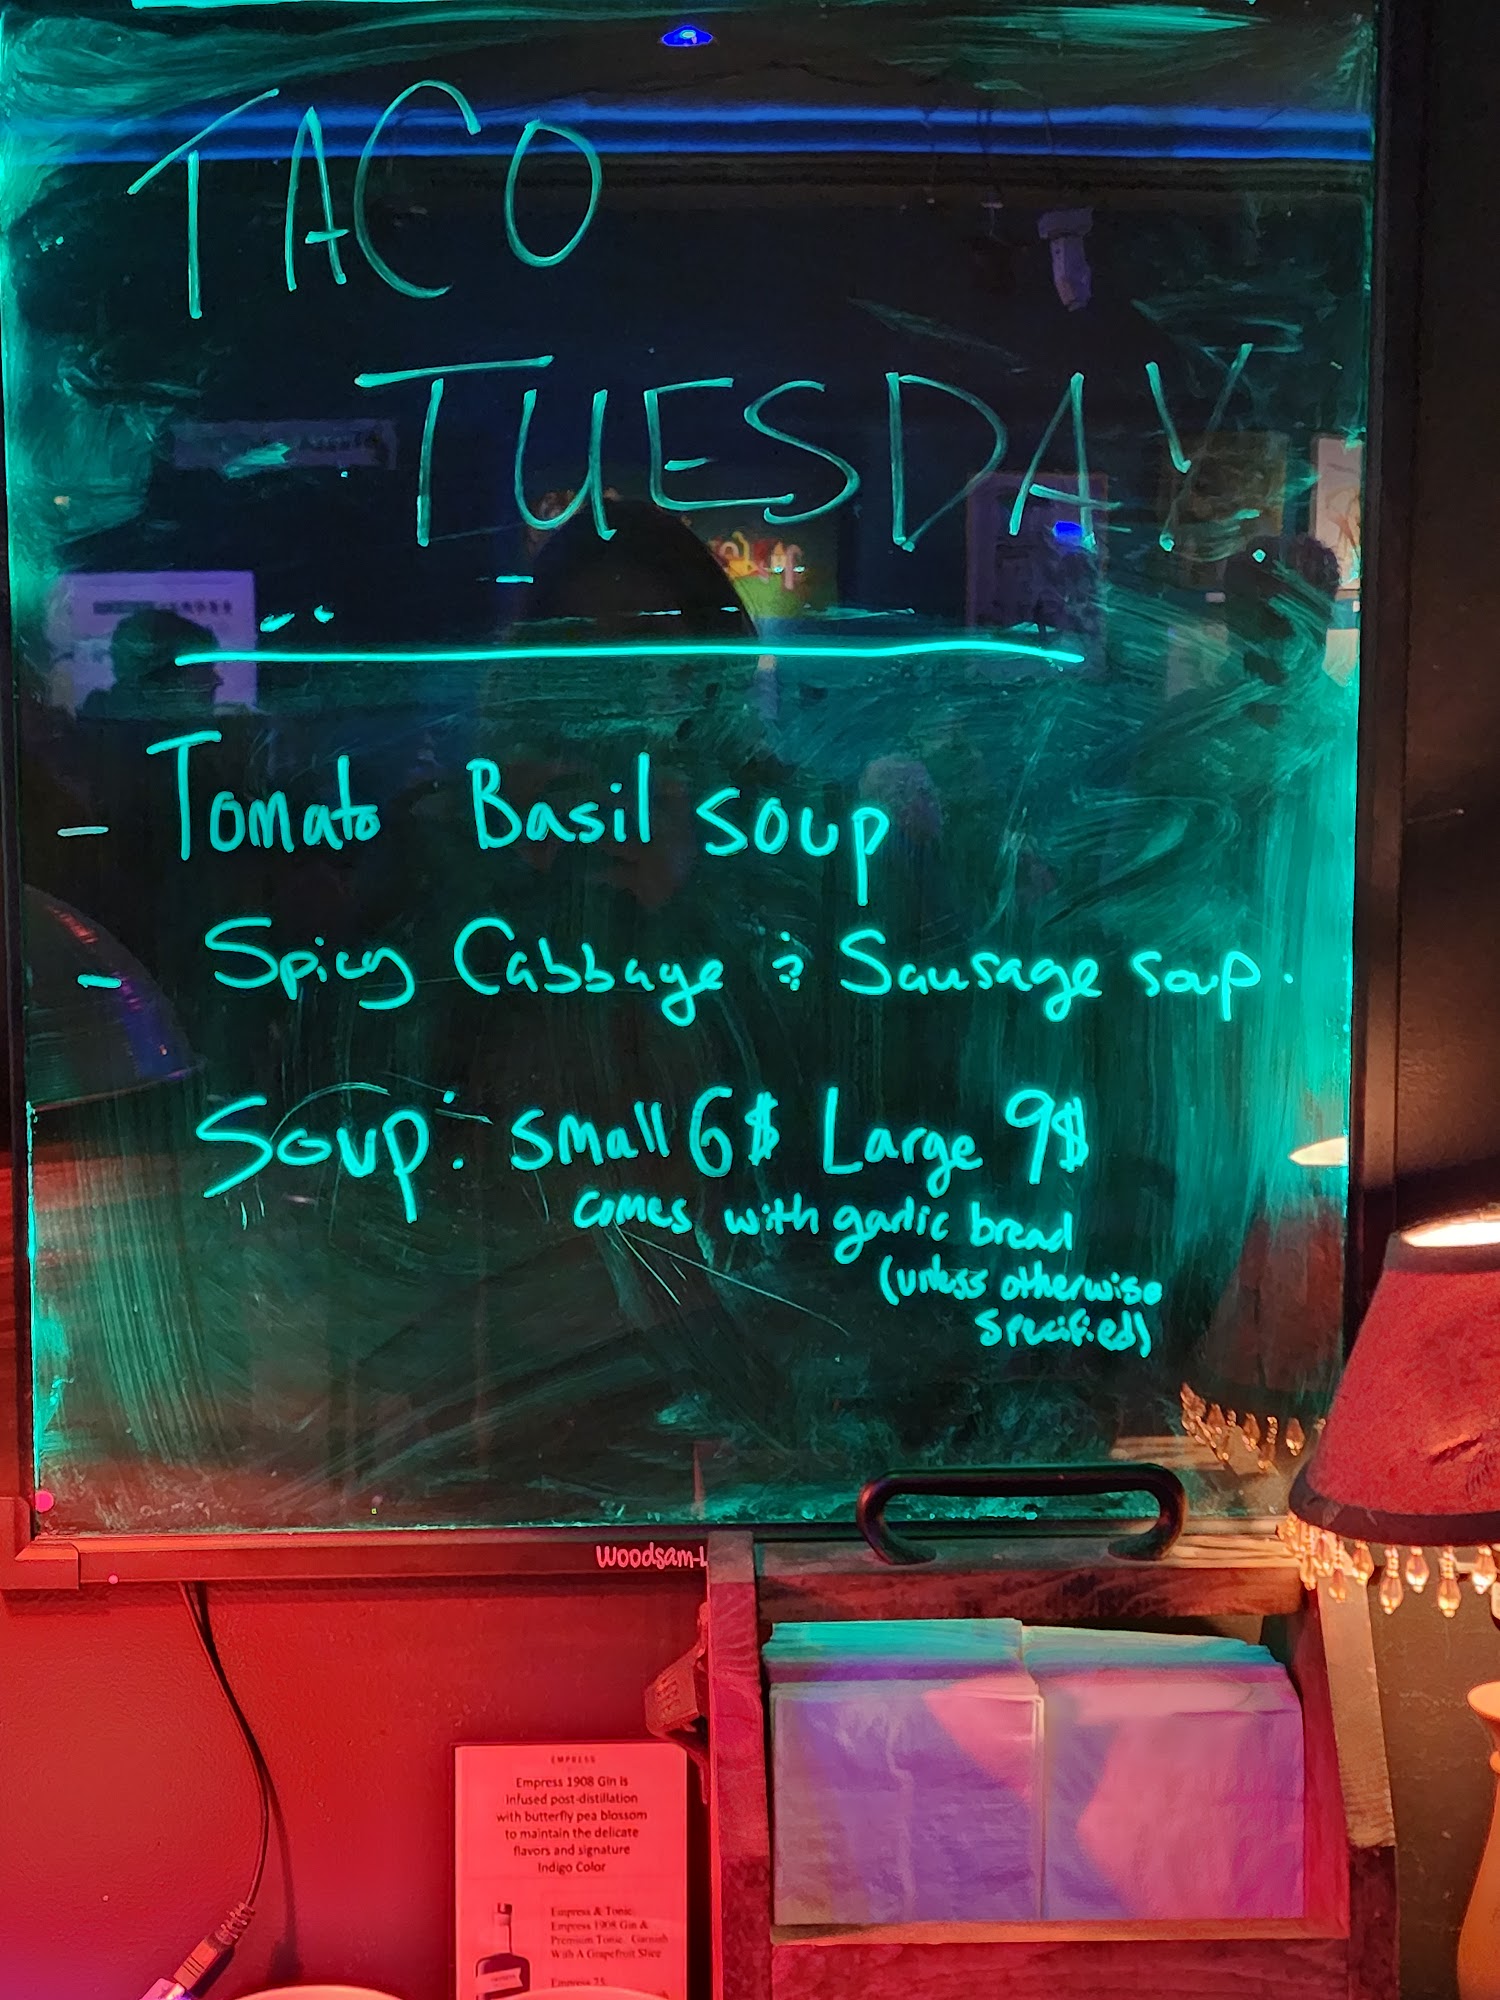 TACO
TUESDAY
- Tomato Basil soup
- Spicy Cabbage & Sausage soup.
Soup: small 6$ Large 9$
comes with garlic bread
(unless otherwise
specified)
Woodsam-L
EMPRESS
Empress 1908 Gin is
infused post-distillation
with butterfly pea blossom
to maintain the delicate
flavors and signature
Indigo Color
Empress & Tonic
Empress 1908 Gin &
Premium Tonic. Garnish
With A Grapefruit Slice
Empress 75